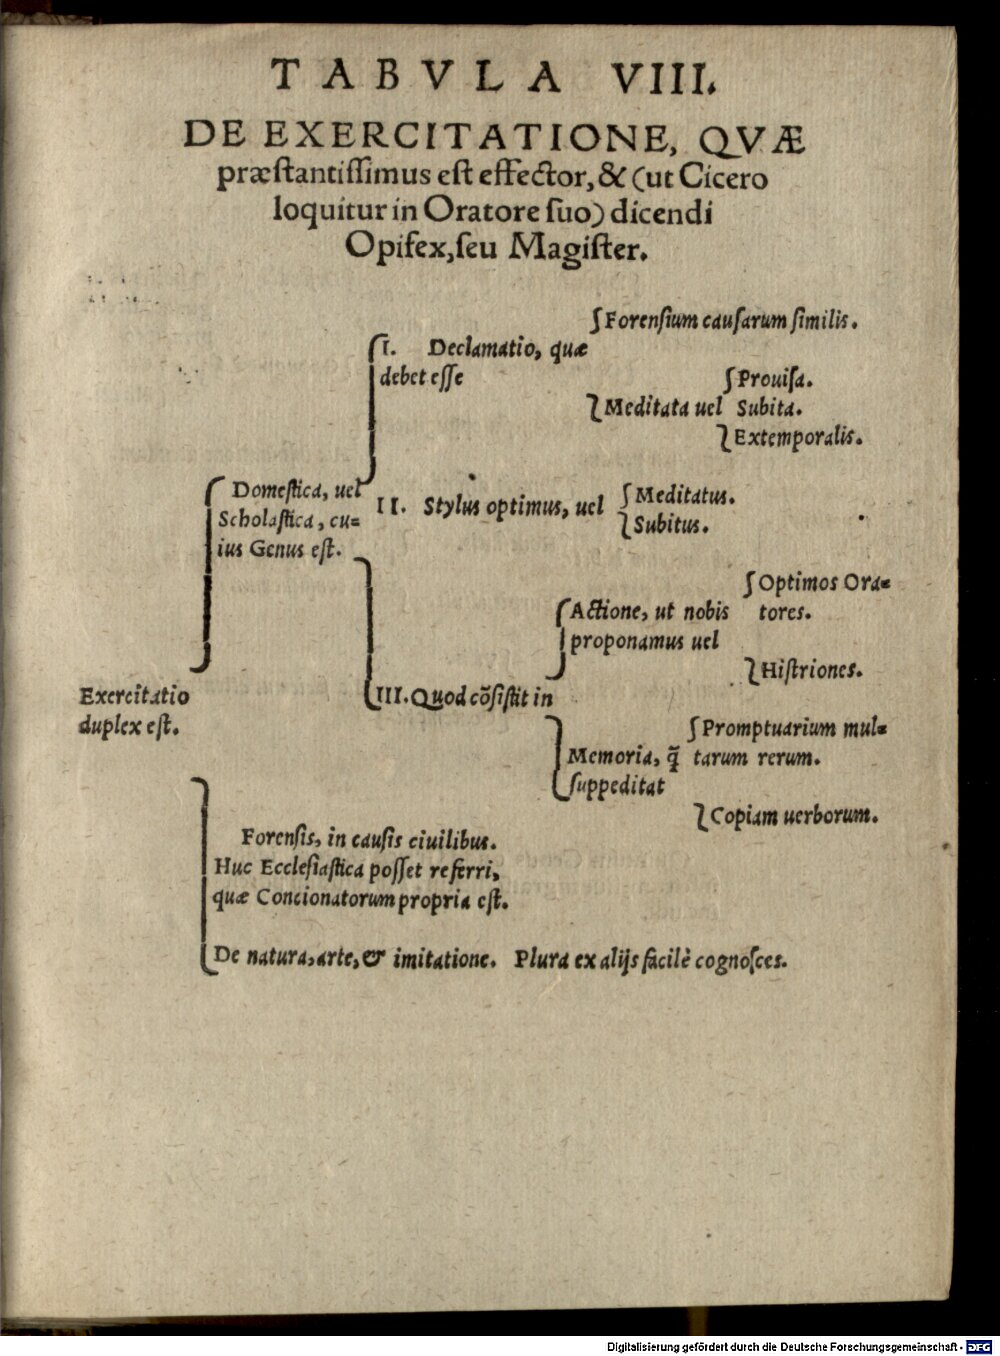 TABVLA VIII.
DE EXERCITATIONE, QVÆ
præstantissimus est effector, & (ut Cicero
loquitur in Oratore suo) dicendi
Opifex, seu Magister.
Exercitatio
duplex est.
Domestica, uel
Scholastica, cu=
ius Genus est.
I. Declamatio, quæ
debet esse
Forensium causarum similis.
Meditata uel
Prouisa.
Subita.
Extemporalis.
II. Stylus optimus, uel
Meditatus.
Subitus.
III. Quod cõsistit in
Actione, ut nobis
proponamus uel
Optimos Ora=
tores.
Histriones.
Memoria, q̃
suppeditat
Promptuarium mul=
tarum rerum.
Copiam uerborum.
Forensis, in causis ciuilibus.
Huc Ecclesiastica posset referri,
quæ Concionatorum propria est.
De natura, arte, & imitatione. Plura ex alijs facilè cognosces.
Digitalisierung gefördert durch die Deutsche Forschungsgemeinschaft - DFG